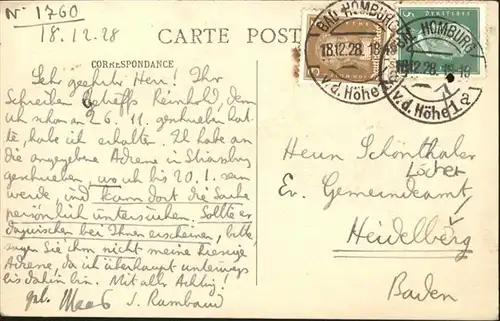 Nº 1760
18.12.28
CARTE POST
CORRESPONDANCE
BAD HOMBURG
18.12.28. 18-19
v.d. Höhe 1 a
Deutsches
5
Sehr geehrter Herr! Ihr
Schreiben betreffs Reinhold, dem
ich schon am 26. 11. geschrieben hat-
te, habe ich erhalten. Ich habe an
die angegebene Adresse in Strassburg
geschrieben, wo ich bis 20.1. sein
werde, und kann dort die Sache
persönlich untersuchen. Sollte er
dazwischen bei Ihnen erscheinen, bitte,
sagen Sie ihm nicht meine hiesige
Adresse, da ich überhaupt unterwegs
bis dahin bin. Mit aller Achtg!
J. Rambaud
Herrn Schönthaler
Löcher
Ev. Gemeindeamt
Heidelberg
Baden